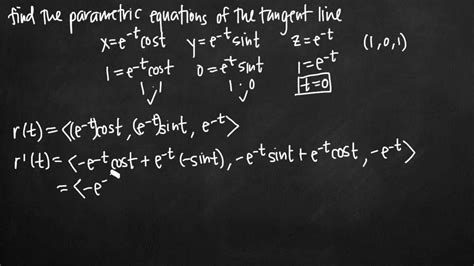 find the parametric equations of the tangent line
x=e^-t cost y=e^-t sint z=e^-t (1,0,1)
1=e^-t cost 0=e^-t sint 1=e^-t
1 · 1 1 · 0 t=0
✓ ✓
r(t)=⟨(e^-t)cost,(e^-t)sint, e^-t⟩
r'(t)=⟨-e^-t cost+e^-t(-sint),-e^-t sint+e^-t cost,-e^-t⟩
=⟨-e^-